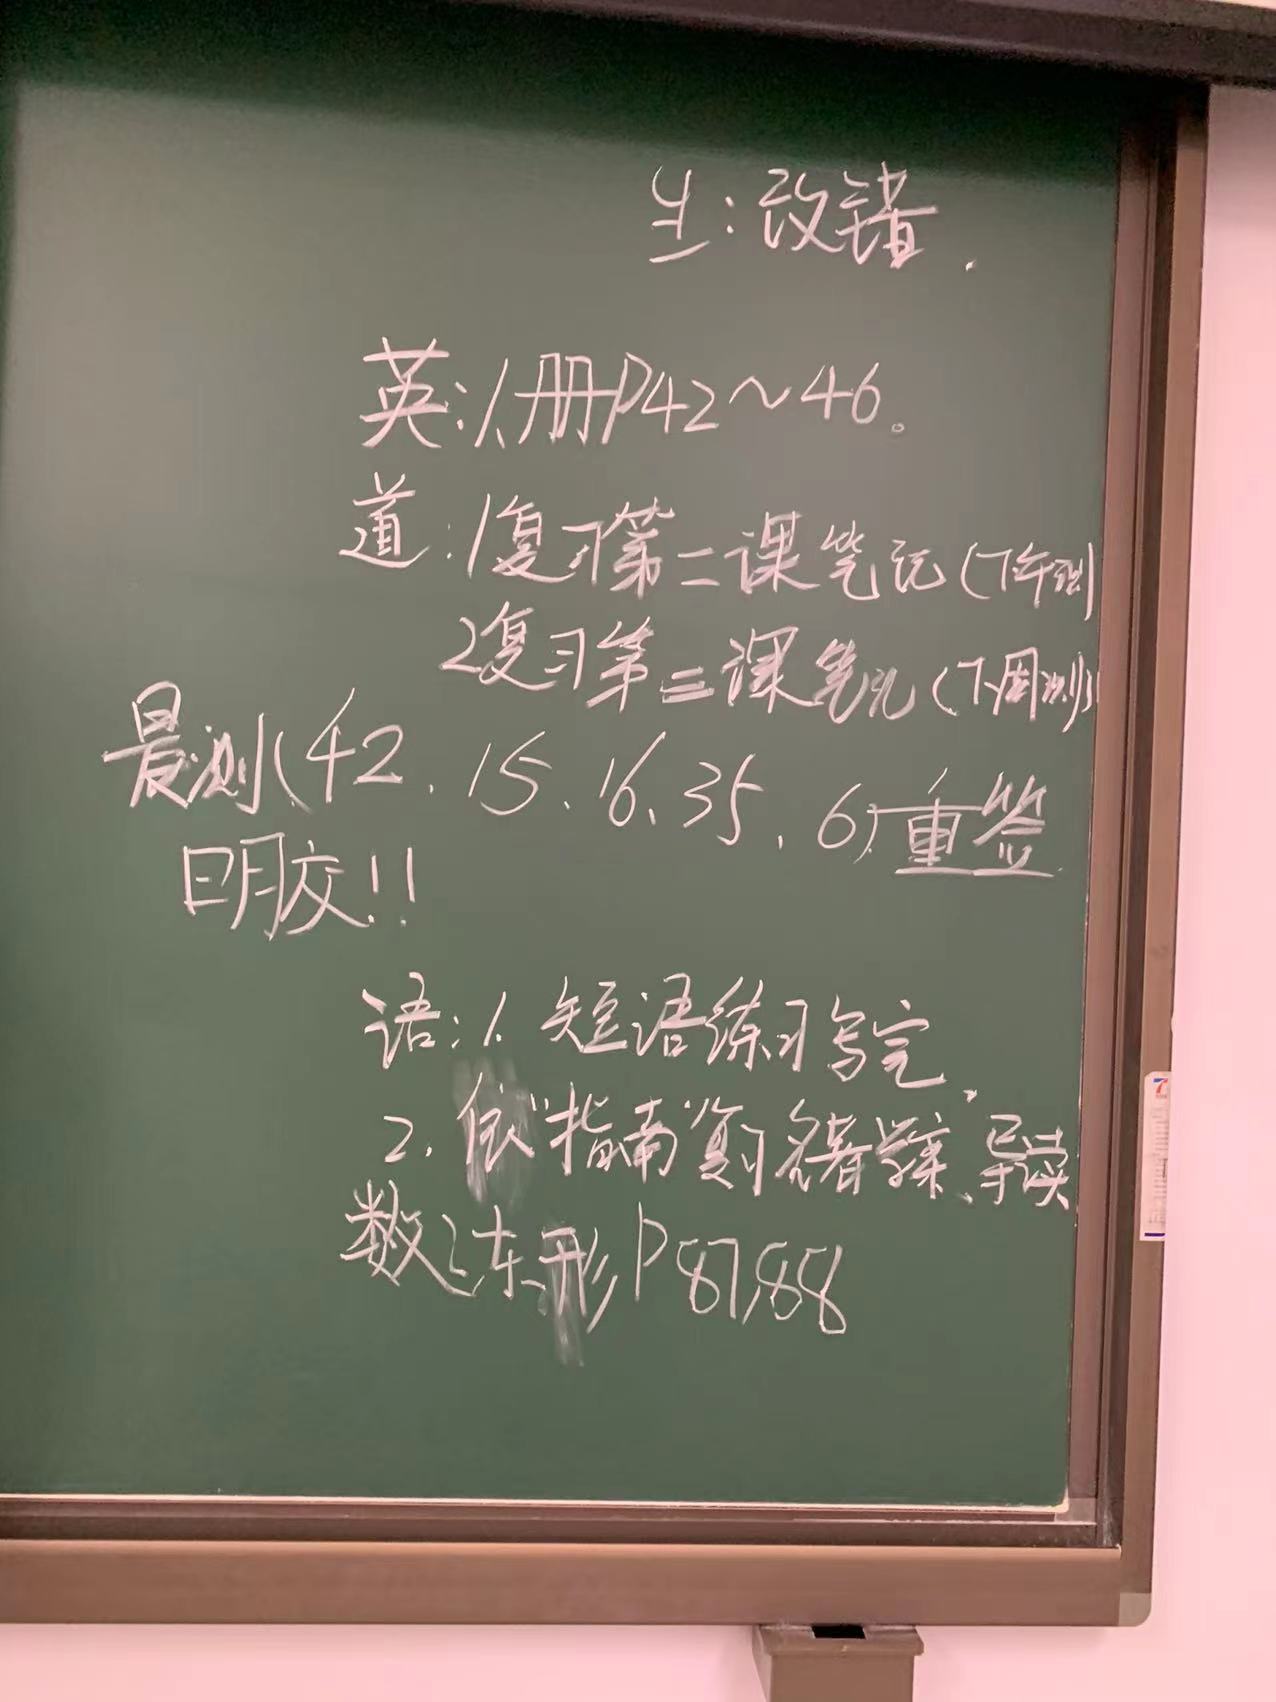 生:改错.
英:1.册P42~46。
道:1复习第二课笔记(下午测)
2复习第三课笔记(下周测)
晨测(42、15、16、35、6)重签
明交!!
语:1.短语练习写完.
2.依"指南"复习名著 导读
数: P87,88